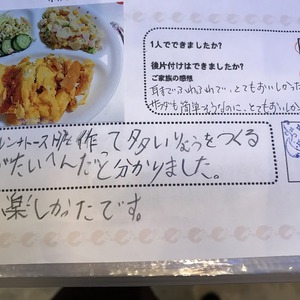 1人でできましたか?
後片付けはできましたか?
ご家族の感想
とてもおいしかった
簡単そうなのに、とてもおいしか
レンチトースト
作って多いりょうをつくる
がたいへんだと分かりました。
楽しかったです。